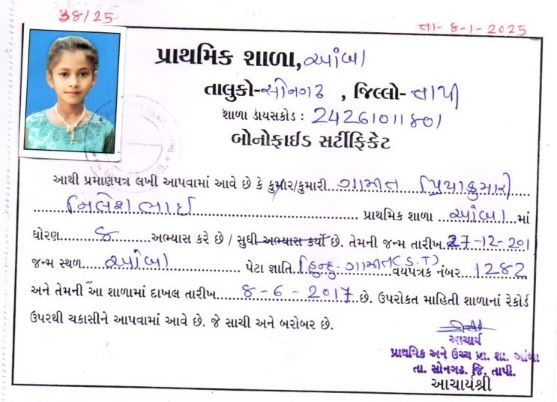 38/25
તા- 8-1-2025
પ્રાથમિક શાળા, આંબા
તાલુકો-સોનગઢ, જિલ્લો-તાપી
શાળા ડાયસકોડ : 24261011801
બોનોફાઈડ સર્ટીફિકેટ
આથી પ્રમાણપત્ર લખી આપવામાં આવે છે કે કુમાર/કુમારી ગામીત
પ્રાથમિક શાળા આંબા માં
ધોરણ 8 અભ્યાસ કરે છે / સુધી અભ્યાસ કર્યો છે. તેમની જન્મ તારીખ 27-12-201
જન્મ સ્થળ આંબા પેટા જ્ઞાતિ હિન્દુ ગામીત (S.T) વયપત્રક નંબર 1282
અને તેમની આ શાળામાં દાખલ તારીખ 8-6-2017 છે. ઉપરોકત માહિતી શાળાનાં રેકોર્ડ
ઉપરથી ચકાસીને આપવામાં આવે છે. જે સાચી અને બરોબર છે.
આચાર્ય
પ્રાથમિક અને ઉચ્ચ પ્રા. શા. આંબા
તા. સોનગઢ. જિ. તાપી.
આચાર્યશ્રી